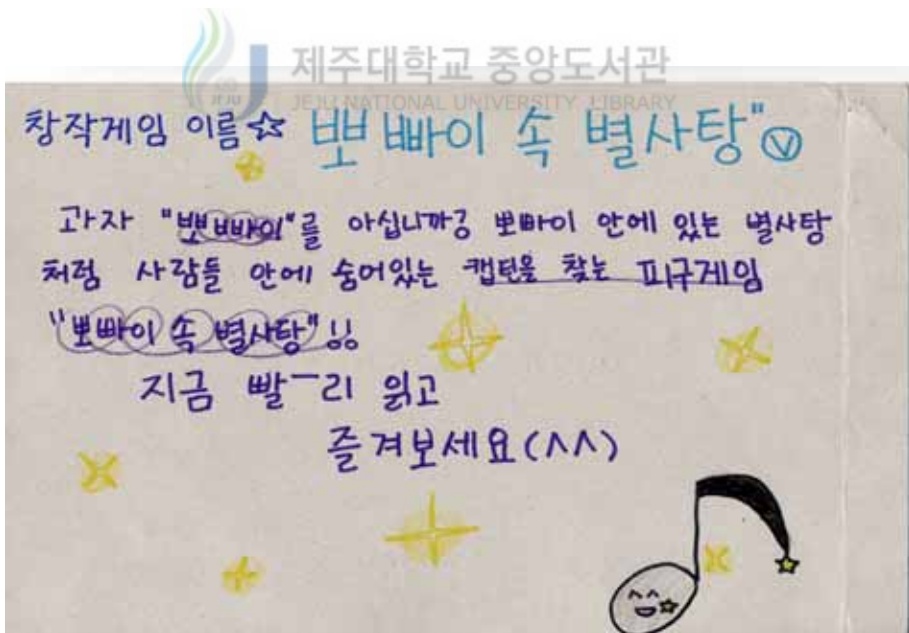 제주대학교 중앙도서관
JEJU NATIONAL UNIVERSITY LIBRARY
창작게임 이름☆ 뽀빠이 속 별사탕"ⓥ
과자 "뽀빠이"를 아십니까? 뽀빠이 안에 있는 별사탕
처럼 사람들 안에 숨어있는 캡틴을 찾는 피구게임
"뽀빠이 속 별사탕"!!
지금 빨ㅡ리 읽고
즐겨보세요(^^)